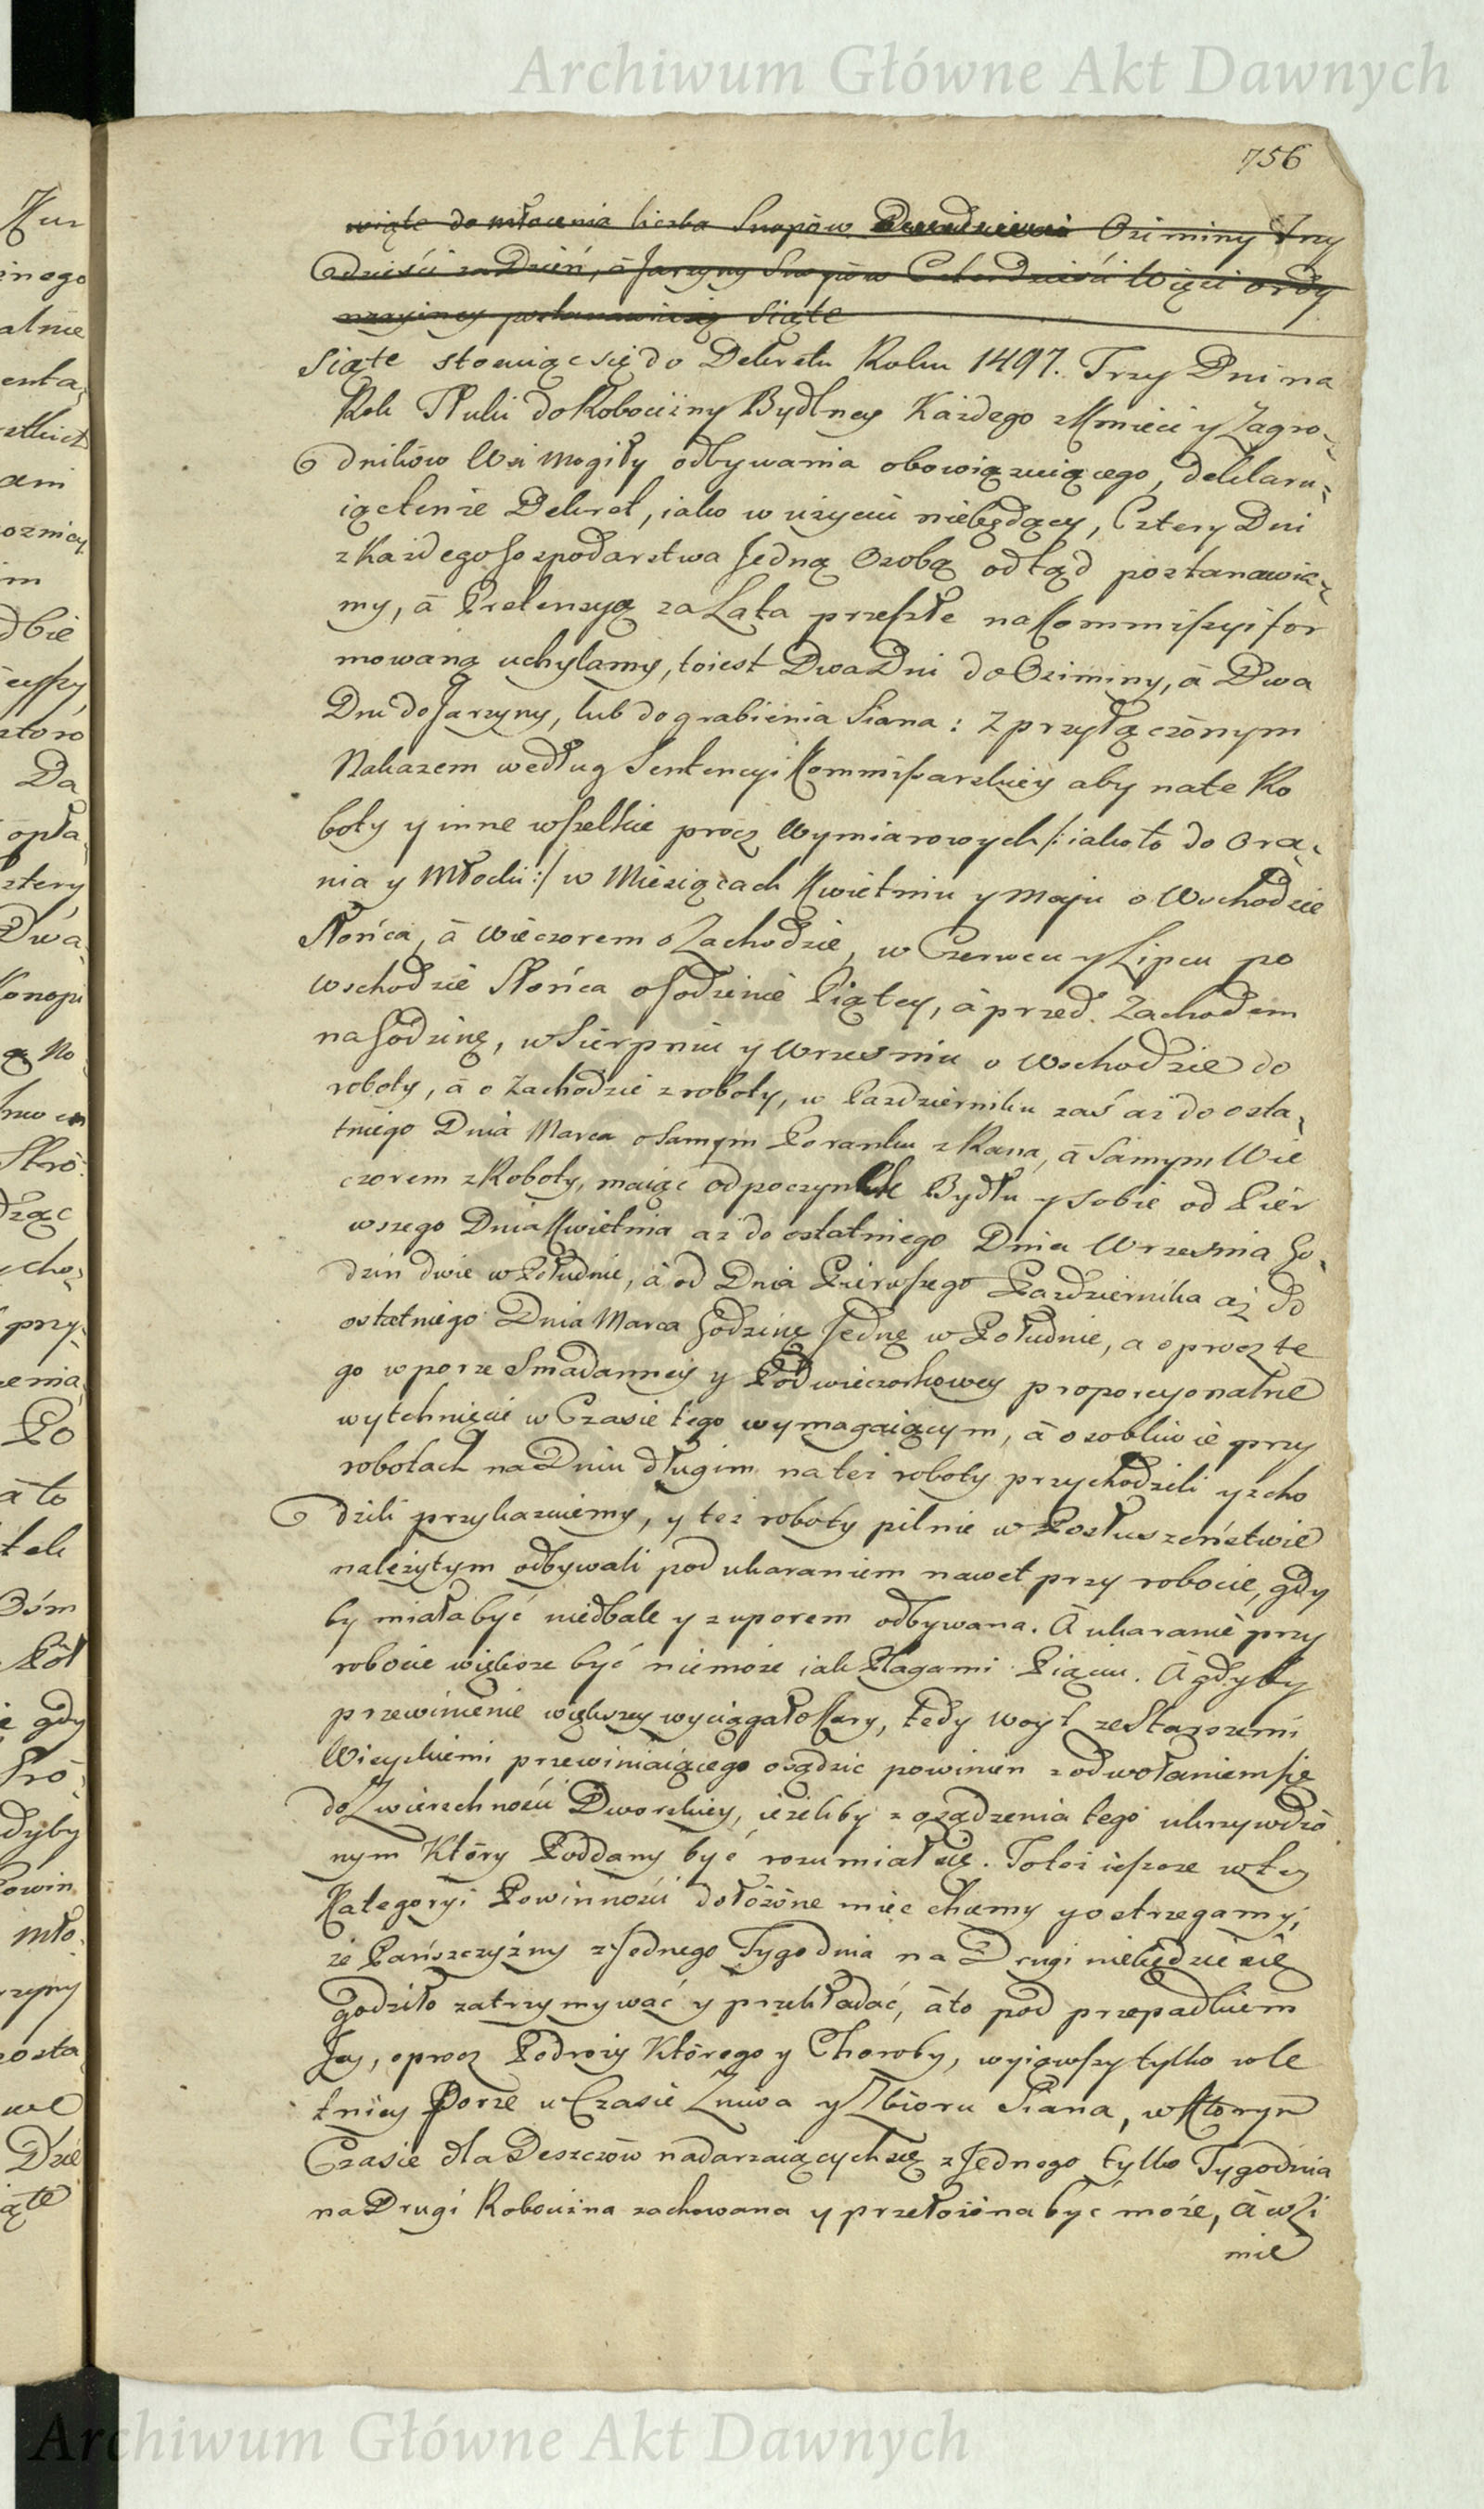 Archiwum Główne Akt Dawnych
756
wiąte do młocenia liczba Snopów Oziminy trzy
dzieści na Dzień, à Jarzyny Snopów Czterdzieści Więcí ordy
naryiney postanawiaią Siąte
Siąte stosuiąc się do Dekretu Roku 1497. Trzy Dni na
Rok Tłuki do Robocizny Bydlney Każdego z Kmieci y Zagro-
dników Wsi Mogiły odbywania obowiązuiącego, deklaru-
iąc tenże Dekret, iako w użyciu niebędący, Cztery Dni
z Każdego Gospodarstwa Jedną Osobą odtąd postanawia-
my, à Pretensyą za Lata przeszłe na Kommissyi for
mowaną uchylamy, toiest Dwa Dni do Oziminy, à Dwa
Dni do Jarzyny, lub do grabienia Siana: z przyłączonym
Nakazem według Sentencyi Kommissarskiey aby na te Ro
boty y inne wszelkie procz Wymiarowych /: iakoto do Ora-
nia y Młocki :/ w Miesiącach Kwietniu y Maju o Wschodzie
Słońca, à Wieczorem o Zachodzie, w Czerwcu y Lipcu po
Wschodzie Słońca o Godzinie Piątey, à przed Zachodem
na Godzinę, w Sierpniu y Wrzesniu o Wschodzie do
roboty, à o Zachodzie z roboty, w Pazdzierniku zaś aż do osta-
tniego Dnia Marca o Samym Poranku z Rana, à Samym Wie
czorem z Roboty, maiąc odpoczynek Bydłu y Sobie od Pier
wszego Dnia Kwietnia aż do ostatniego Dnia Wrzesnia Go-
dzin dwie w Południe, à od Dnia Pierwszego Pazdziernika aż do
ostatniego Dnia Marca Godzinę Jednę w Południe, a oprocz te
go w porze Smadanney y Podwieczorkowey proporcyonalne
wytchnięcie w Czasie tego wymagaiącym, à osobliwie przy
robotach na Dniu długim na też roboty przychodzili y scho
dzili przykazuiemy, y też roboty pilnie w Posłuszeństwie
należytym odbywali pod ukaraniem nawet przy robocie, gdy
by miała być niedbale y z uporem odbywana. À ukaranie przy
robocie większe być niemoże iak Plagami Pięciu. À gdyby
przewinienie większey wyciągało Kary, tedy Woyt ze Starszemi
Wieyskiemi przewiniaiącego osądzic powinien z odwołaniem się
do Zwierzchności Dworskiey, ieżeliby z osądzenia tego ukrzywdzo
nym Który Poddany być rozumiał się. Toteż ieszcze w tey
Kategoryi Powinności dołożone mieć chcemy y ostrzegamy,
że Pańszczyżny z Jednego Tygodnia na Drugi niebędzie się
godziło zatrzymywać y przekładać, à to pod przepadkiem
Jey, oprocz Podroży Którego y Choroby, wyiąwszy tylko w le
tniey Porze w Czasie Żniwa y Zbioru Siana, w Ktorym
Czasie dla Deszczow nadarzaiących się z Jednego tylko Tygodnia
na Drugi Robocizna zachowana y przełożona być może, à w Zi
mie
Archiwum Główne Akt Dawnych